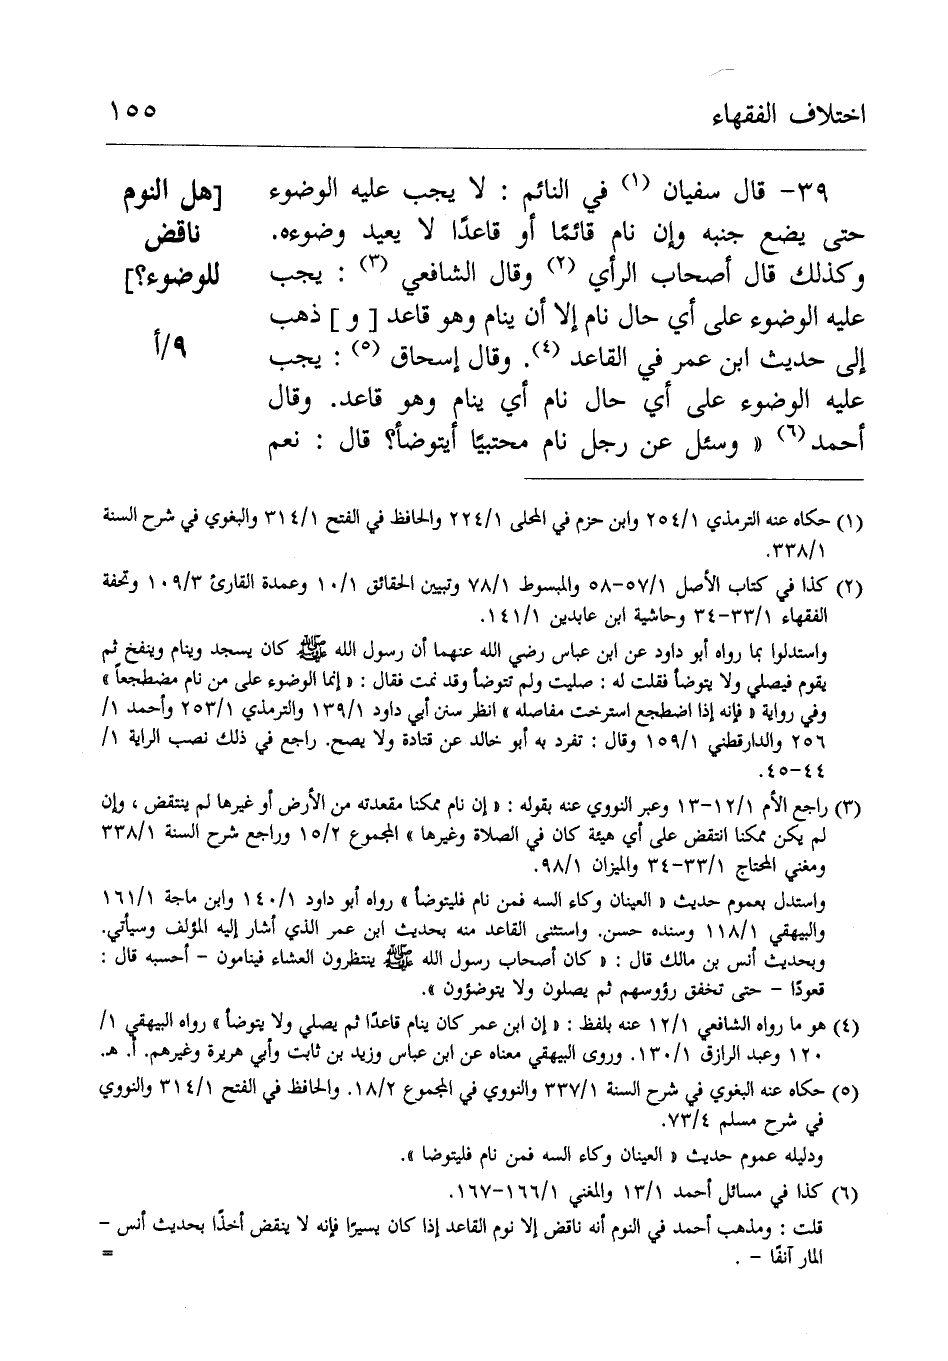 اختلاف الفقهاء ١٥٥
[هل النوم
ناقض
للوضوء؟]
٩/أ
٣٩- قال سفيان (١) في النائم : لا يجب عليه الوضوء
حتى يضع جنبه وإن نام قائمًا أو قاعدًا لا يعيد وضوءه.
وكذلك قال أصحاب الرأي (٢) وقال الشافعي (٣) : يجب
عليه الوضوء على أي حال نام إلا أن ينام وهو قاعد [ و ] ذهب
إلى حديث ابن عمر في القاعد (٤). وقال إسحاق (٥) : يجب
عليه الوضوء على أي حال نام أي ينام وهو قاعد. وقال
أحمد (٦) « وسئل عن رجل نام محتبيًا أيتوضأ؟ قال : نعم
(١) حكاه عنه الترمذي ٢٥٤/١ وابن حزم في المحلى ٢٢٤/١ والحافظ في الفتح ٣١٤/١ والبغوي في شرح السنة
٣٣٨/١.
(٢) كذا في كتاب الأصل ٥٧/١-٥٨ والمبسوط ٧٨/١ وتبيين الحقائق ١٠/١ وعمدة القارئ ١٠٩/٣ وتحفة
الفقهاء ٣٣/١-٣٤ وحاشية ابن عابدين ١٤١/١.
واستدلوا بما رواه أبو داود عن ابن عباس رضي الله عنهما أن رسول الله ﷺ كان يسجد وينام وينفخ ثم
يقوم فيصلي ولا يتوضأ فقلت له : صليت ولم تتوضأ وقد نمت فقال : « إنما الوضوء على من نام مضطجعاً »
وفي رواية « فإنه إذا اضطجع استرخت مفاصله » انظر سنن أبي داود ١٣٩/١ والترمذي ٢٥٣/١ وأحمد ١/
٢٥٦ والدارقطني ١٥٩/١ وقال : تفرد به أبو خالد عن قتادة ولا يصح. راجع في ذلك نصب الراية ١/
٤٤-٤٥.
(٣) راجع الأم ١٢/١-١٣ وعبر النووي عنه بقوله : « إن نام ممكنا مقعدته من الأرض أو غيرها لم ينتقض ، وإن
لم يكن ممكنا انتقض على أي هيئة كان في الصلاة وغيرها » المجموع ١٥/٢ وراجع شرح السنة ٣٣٨/١
ومغني المحتاج ٣٣/١-٣٤ والميزان ٩٨/١.
واستدل بعموم حديث « العينان وكاء السه فمن نام فليتوضأ » رواه أبو داود ١٤٠/١ وابن ماجة ١٦١/١
والبيهقي ١١٨/١ وسنده حسن. واستثنى القاعد منه بحديث ابن عمر الذي أشار إليه المؤلف وسيأتي.
وبحديث أنس بن مالك قال : « كان أصحاب رسول الله ﷺ ينتظرون العشاء فينامون - أحسبه قال :
قعودًا - حتى تخفق رؤوسهم ثم يصلون ولا يتوضؤون ».
(٤) هو ما رواه الشافعي ١٢/١ عنه بلفظ : « إن ابن عمر كان ينام قاعدًا ثم يصلي ولا يتوضأ » رواه البيهقي ١/
١٢٠ وعبد الرازق ١٣٠/١. وروى البيهقي معناه عن ابن عباس وزيد بن ثابت وأبي هريرة وغيرهم. أ. هـ.
(٥) حكاه عنه البغوي في شرح السنة ٣٣٧/١ والنووي في المجموع ١٨/٢. والحافظ في الفتح ٣١٤/١ والنووي
في شرح مسلم ٧٣/٤.
ودليله عموم حديث « العينان وكاء السه فمن نام فليتوضا ».
(٦) كذا في مسائل أحمد ١٣/١ والمغني ١٦٦/١-١٦٧.
قلت : ومذهب أحمد في النوم أنه ناقض إلا نوم القاعد إذا كان يسيرًا فإنه لا ينقض أخذًا بحديث أنس -
المار آنفًا - . =